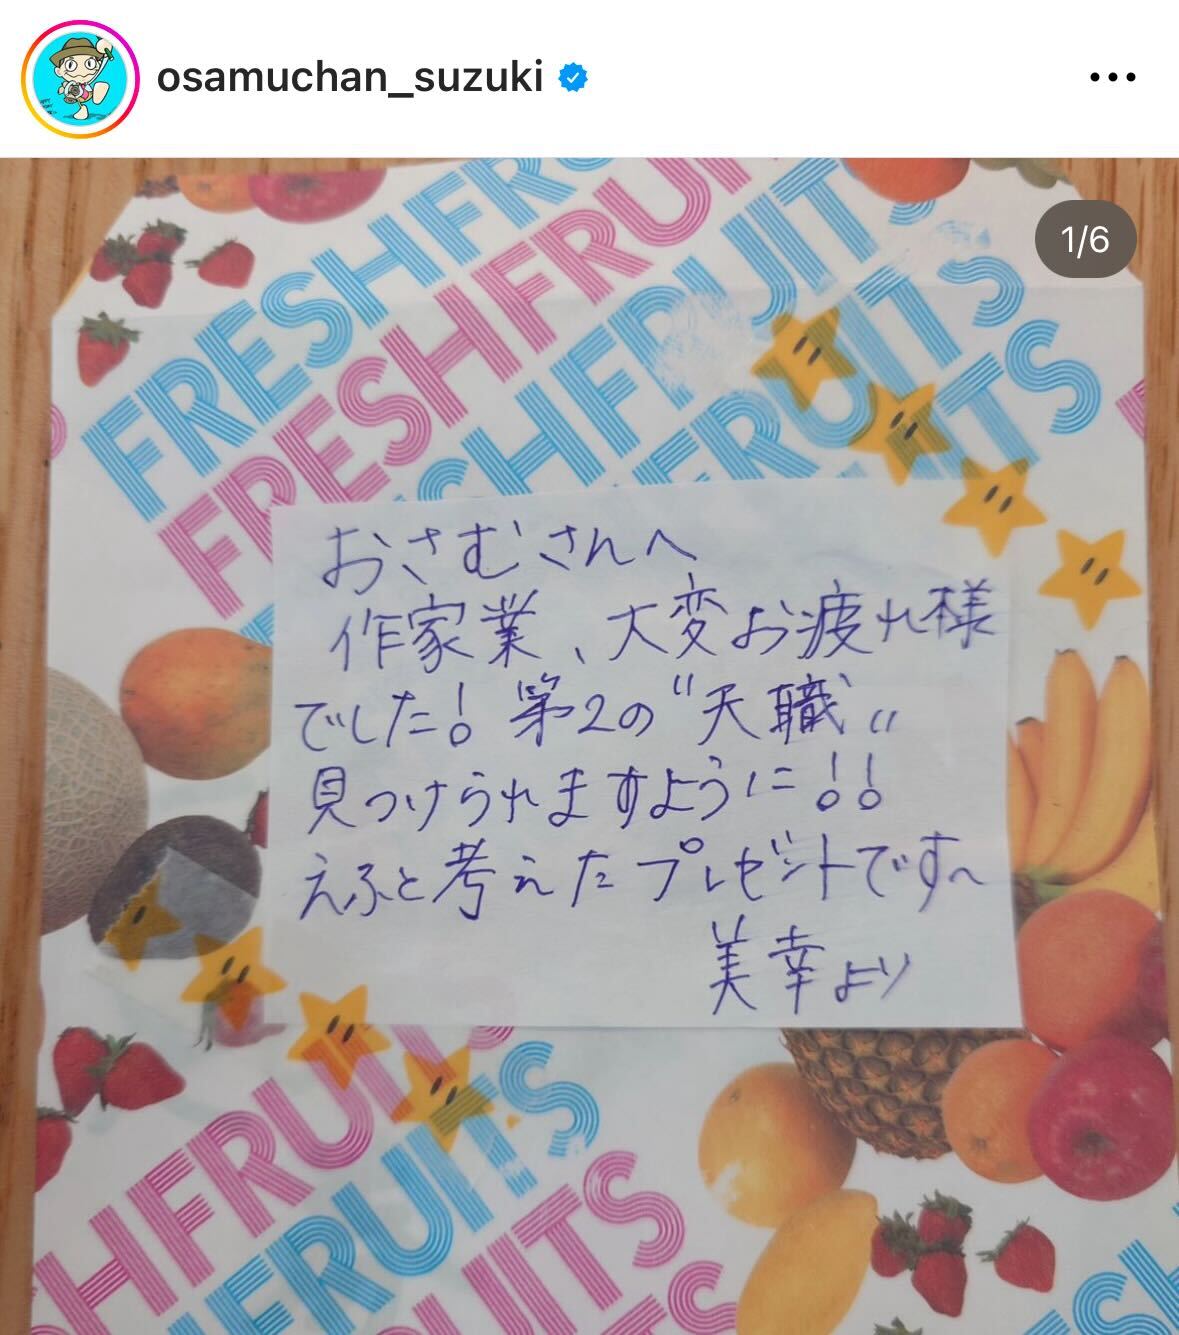 osamuchan_suzuki
1/6
FRESHFRUITS
FRESHFRUITS
FRUITS
おさむさんへ
作家業、大変お疲れ様
でした! 第2の"天職"
見つけられますように!!
えふと考えたプレゼントです〜
美幸より
FRUITS
FRUITS
FRUITS